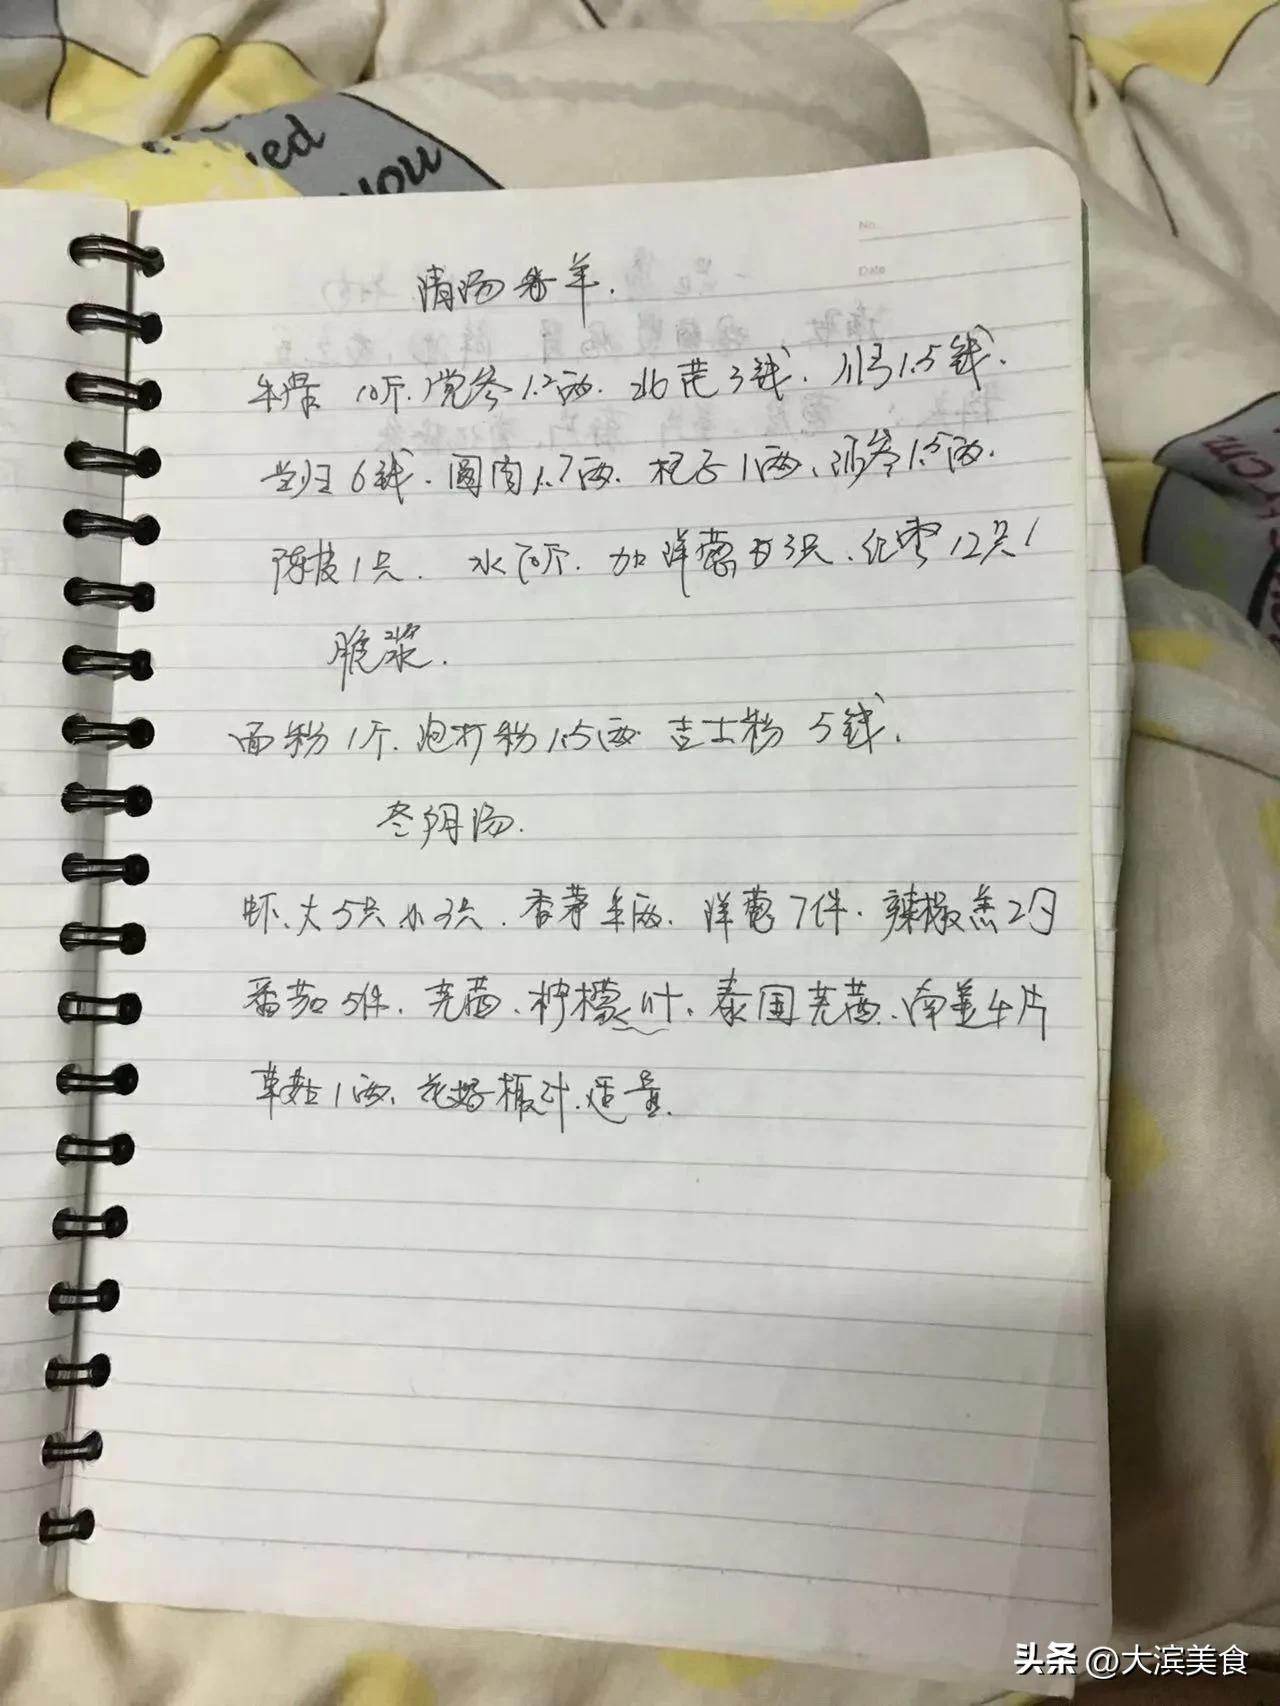 ed
you
No.
Date
清汤 羊.
牛骨 10斤.党参1.2两.北芪3钱.川弓1.5钱.
当归6钱.圆肉1.7两.杞子1两、沙参1.5两.
陈皮1只. 水70斤.加洋葱 3只、红枣12只
脆浆.
面粉1斤.泡打粉1.5两 吉士粉5钱.
冬阴汤.
虾、大5只小3只.香茅 两.洋葱7件.辣椒 2
番茄5件.芫茜、柠檬叶、泰国芫茜、南姜4片
草菇1两、花奶 汁.适量.
cm
头条 @大滨美食